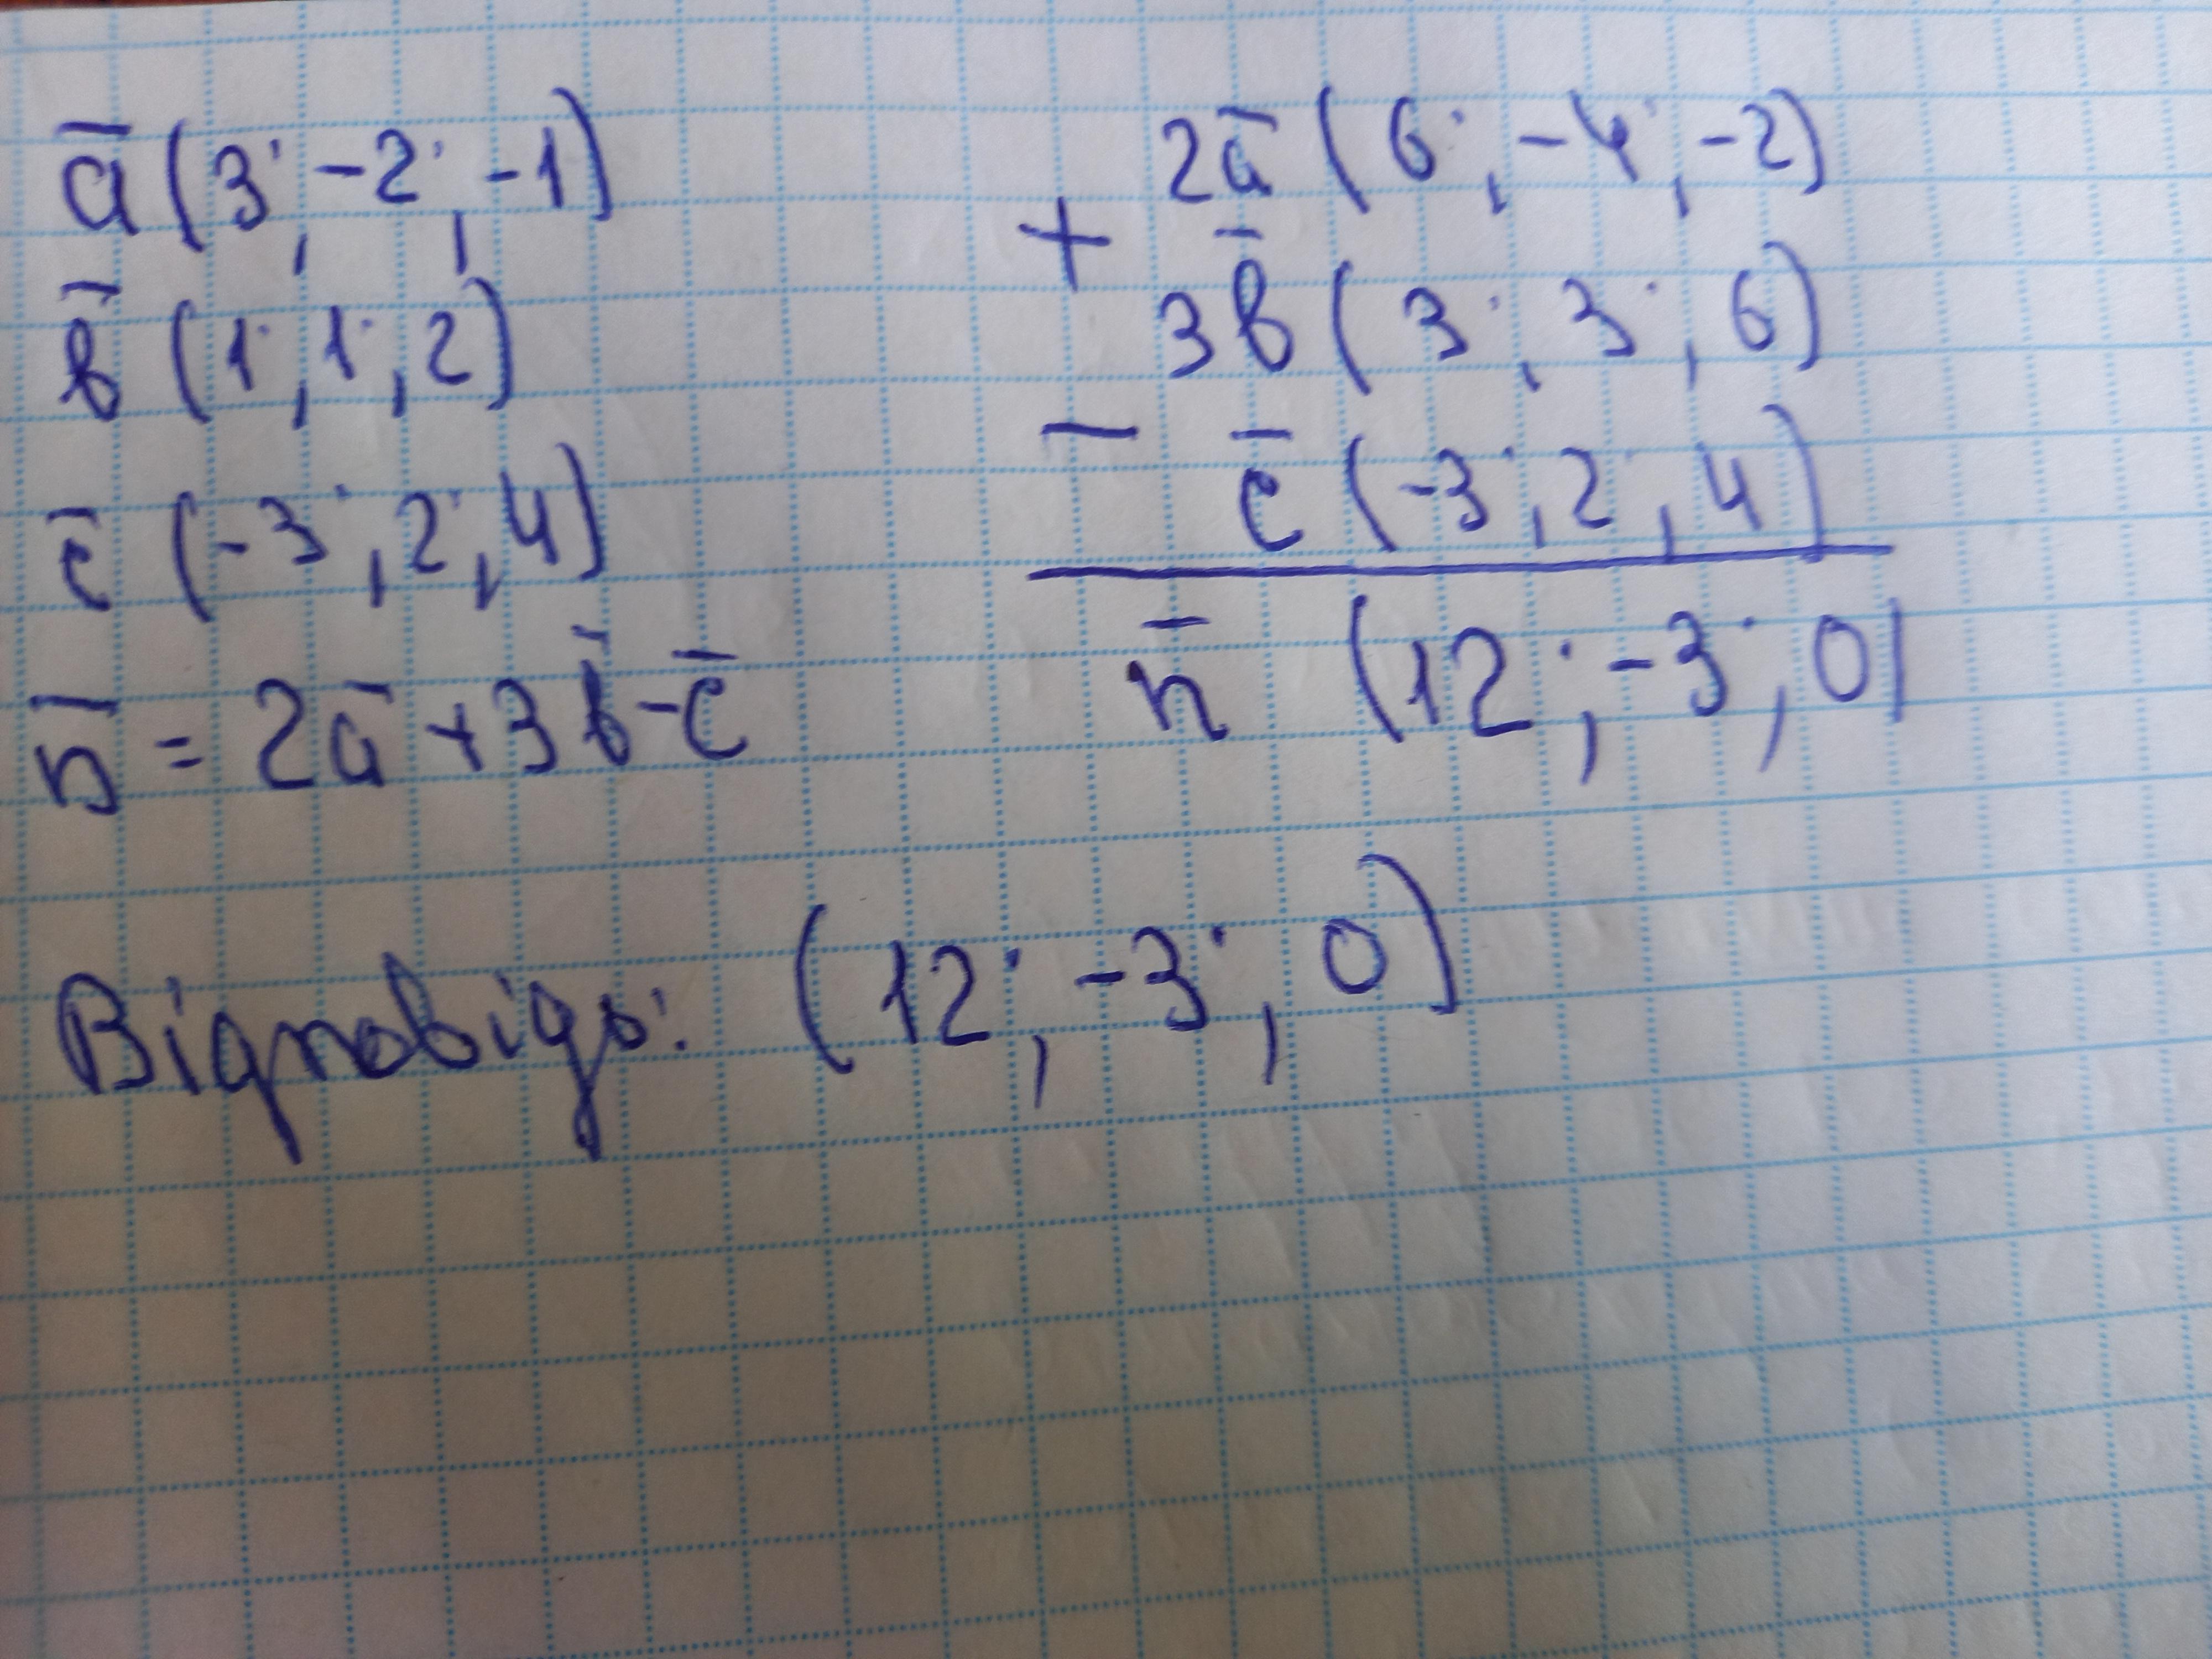 a̅ (3; -2; -1)
b̅ (1; 1; 2)
c̅ (-3; 2; 4)
n̅ = 2a̅ + 3b̅ - c̅
2a̅ (6; -4; -2)
+
3b̅ (3; 3; 6)
-
c̅ (-3; 2; 4)
n̅ (12; -3; 0)
Відповідь: (12; -3; 0)